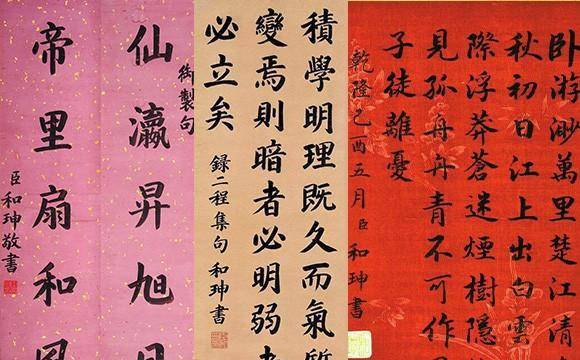 臥游渺萬里楚江清
秋初日江上出白雲
際浮莽蒼迷煙樹隱
見孤舟丹青不可作
子徒離憂
乾隆己酉五月臣和珅書
積學明理既久而氣質
變焉則暗者必明弱者
必立矣
録二程集句和珅書
御製句
仙瀛昇旭
帝里扇和風
臣和珅敬書